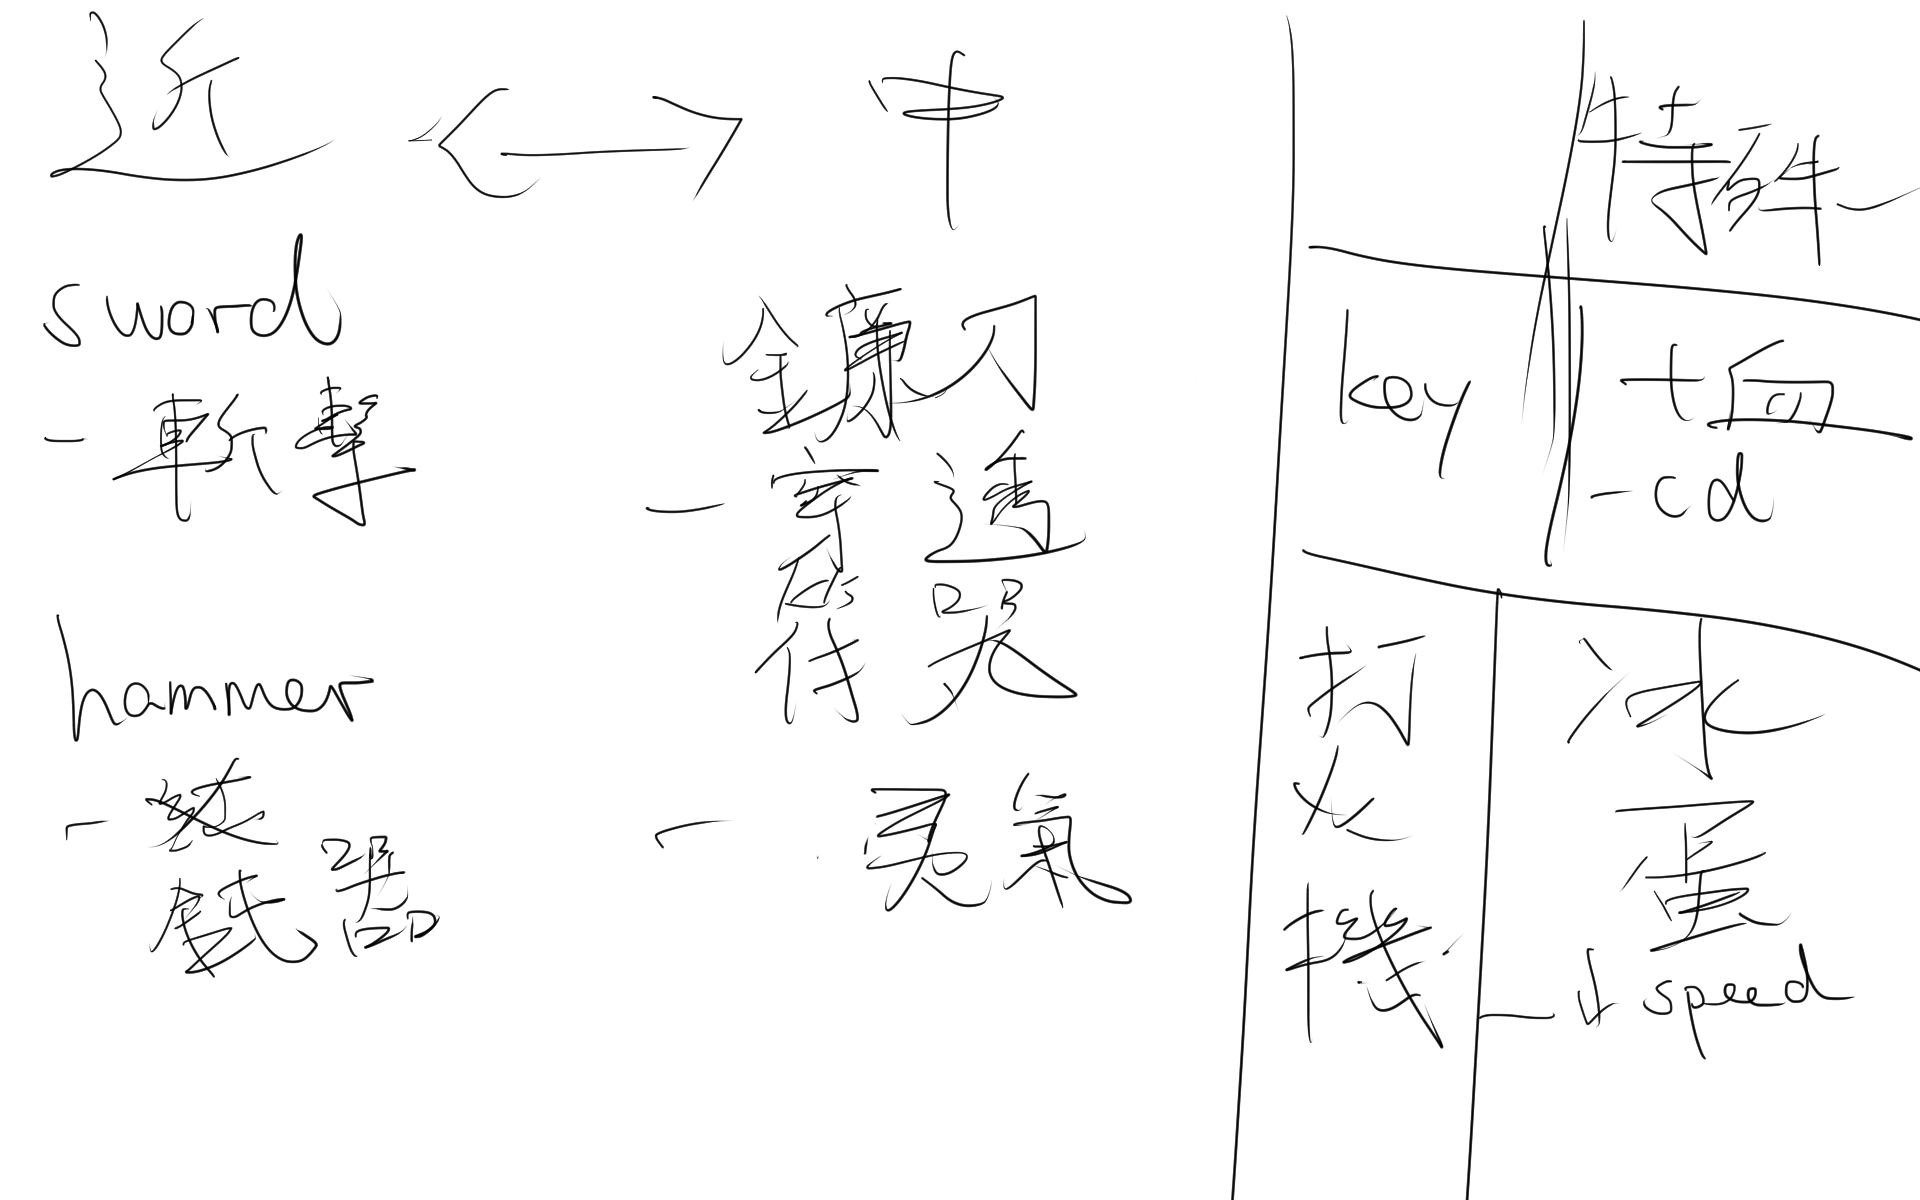 近 ↔ 中
sword
- 斬擊
hammer
- 鈍器
鐮刀
- 穿透
- 勇氣
特殊
key
+血
-cd
打火機
冰蛋
- ↓ speed